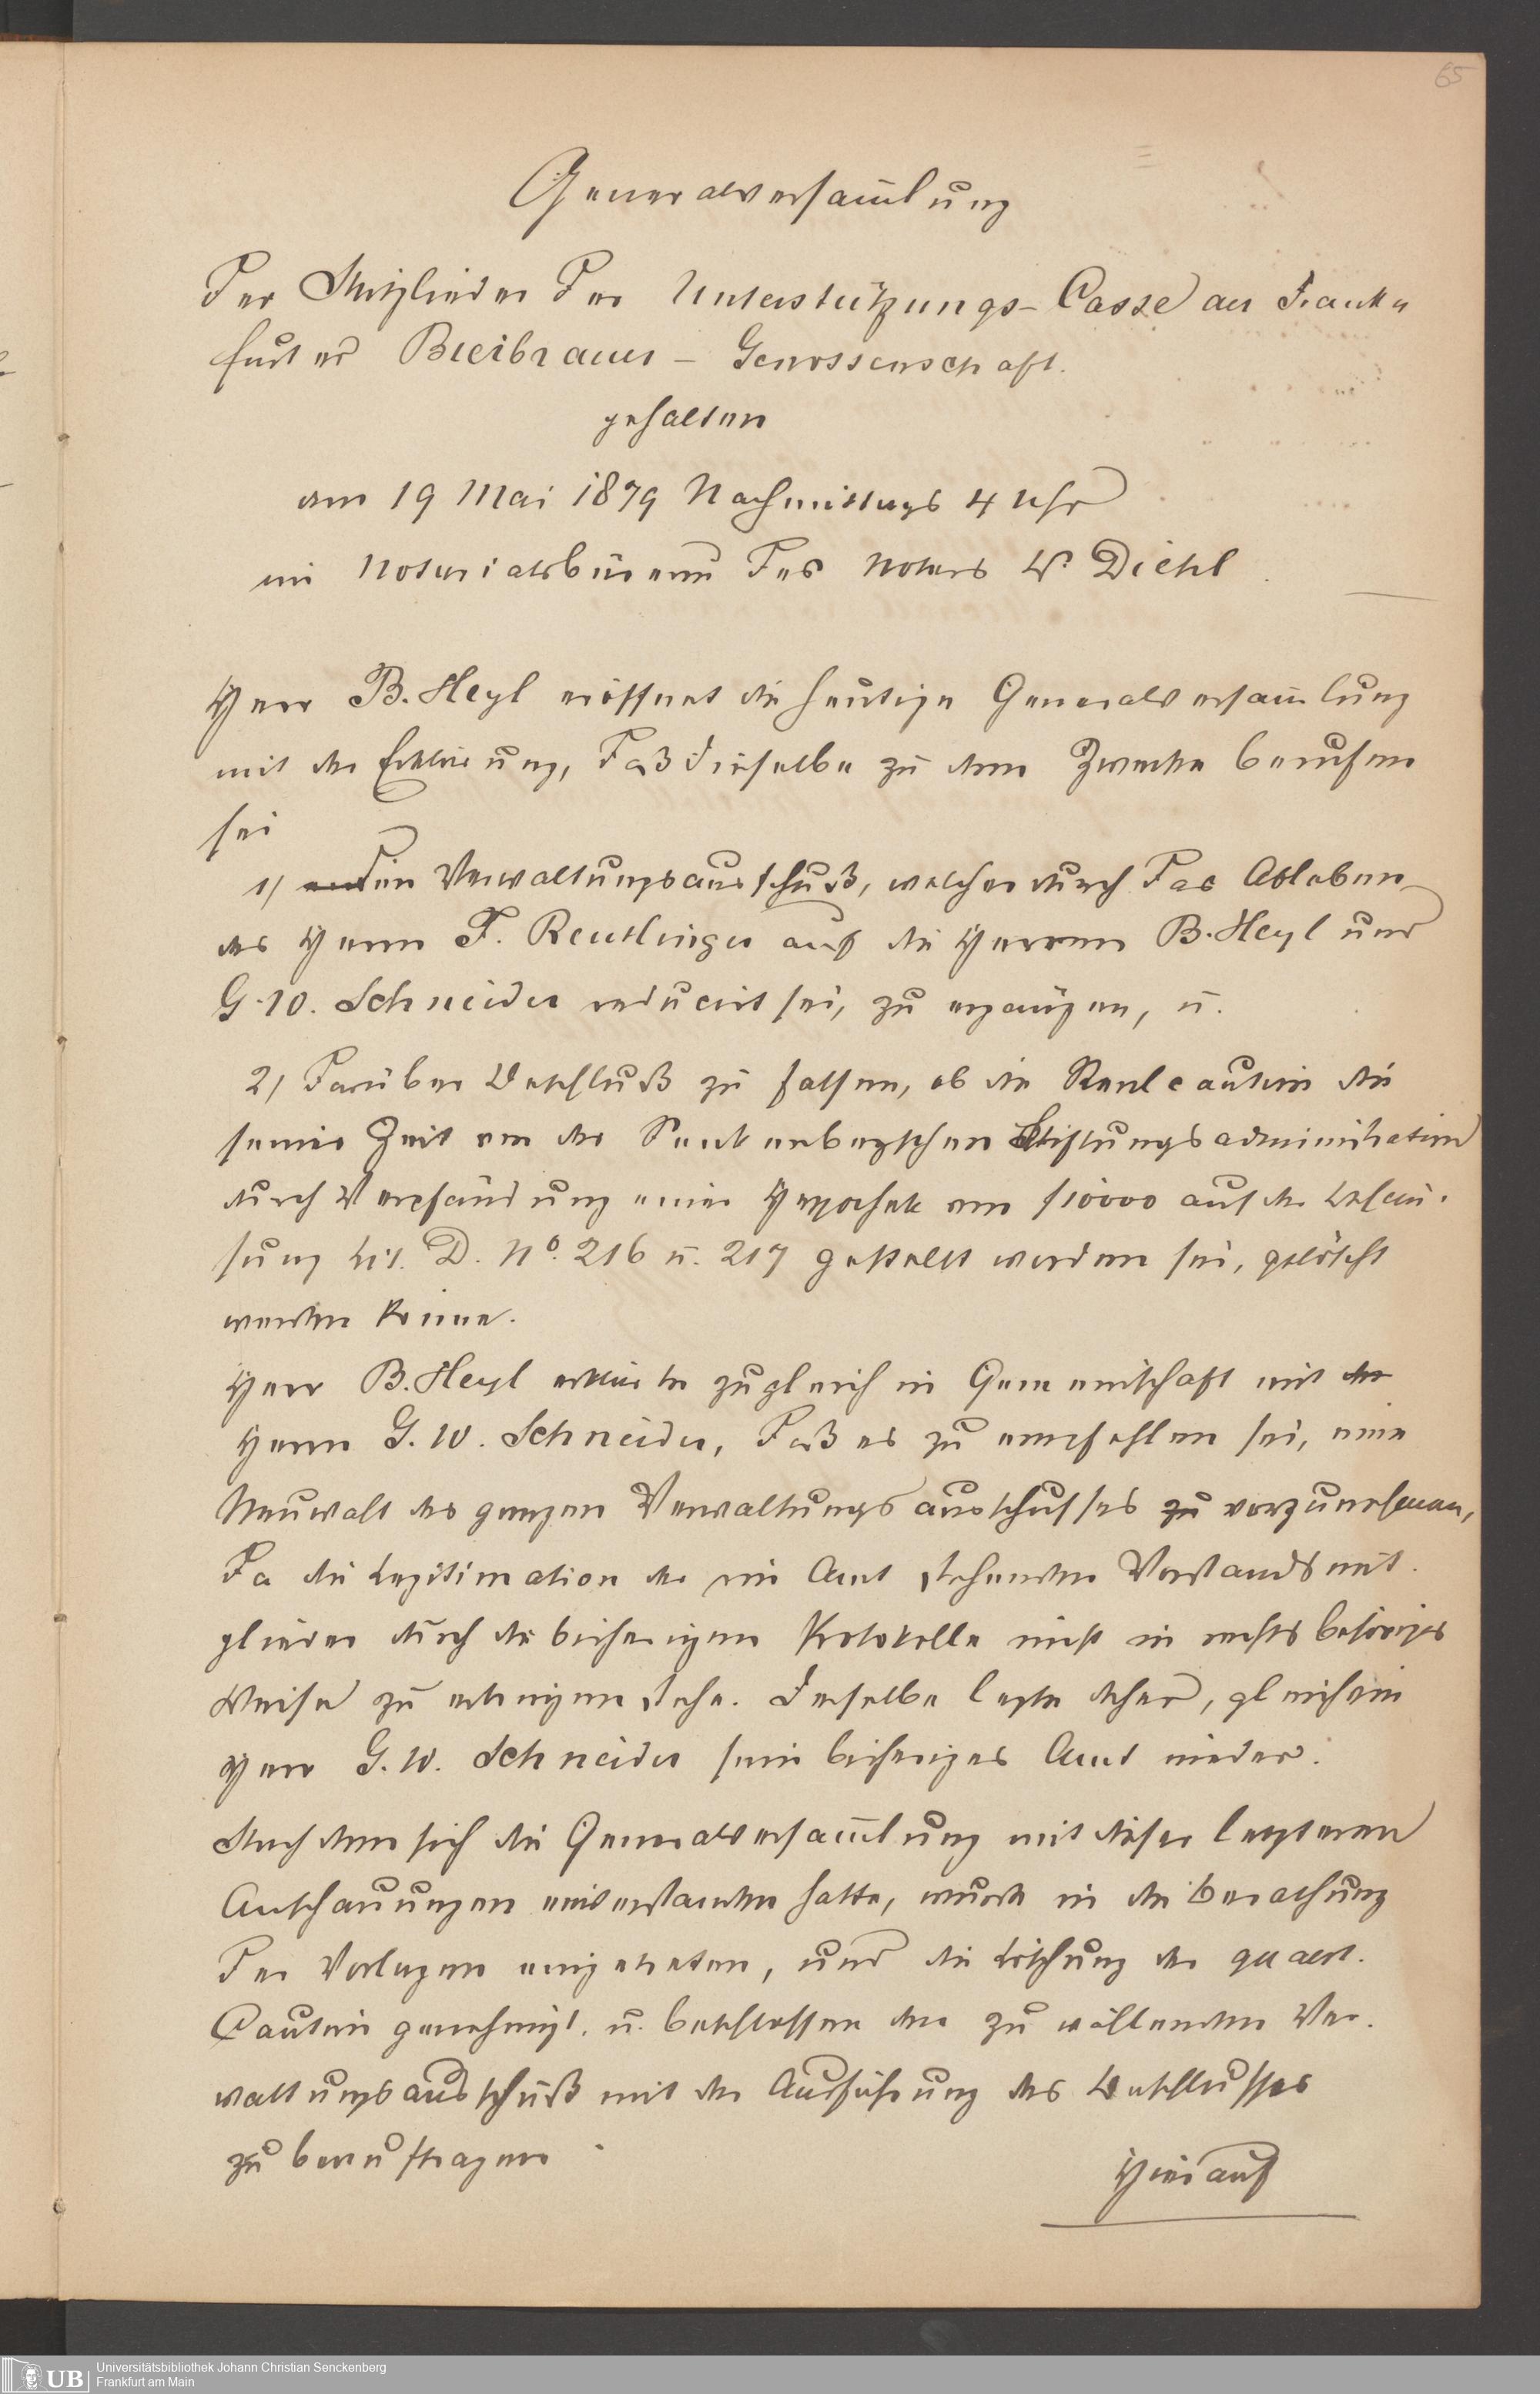 65
Generalversam̅lung
Der Mitglieder der Unterstützungs-Casse der Frank-
furter Bierbrauer-Genossenschaft.
gehalten
am 19 Mai 1879 Nachmittags 4 Uhr
im Notariatsbüreau des Notars Dr Diehl
Herr B. Heyl eröffnet die heutige Generalversam̅lung
mit der Erklärung, daß dieselbe zu dem Zwecke berufen
sei
1) den Verwaltungsausschuß, welcher durch das Ableben
des Herrn F. Reutlinger auf die Herren B. Heyl und
G. W. Schneider reducirt sei, zu ergänzen, u.
2) darüber Beschluß zu fassen, ob die Realcaution die
seiner Zeit von der Senkenbergschen Stiftungsadministration
durch Verpfändung einer Hypothek von f10000 auf der Behau-
sung Lit. D. No. 216 u. 217 gestellt worden sei, gelöscht
werden könne.
Herr B. Heyl erklärte zugleich in Gemeinschaft mit der
Herrn G. W. Schneider, daß es zu empfehlen sei, eine
Neuwahl des ganzen Verwaltungsausschusses zu vorzunehmen,
da die Legitimation der im Amt stehenden Vorstandsmit-
glieder durch die bisherigen Protokolle nicht in rechtsbehöriger
Weise zu erbringen stehe. Derselbe legte daher, gleichwie
Herr G. W. Schneider sein bisheriges Amt nieder.
Nachdem sich die Generalversam̅lung mit dieser letzteren
Anschauungen einverstanden hatte, wurde in die Berathung
der Vorlagen eingetreten, und die Löschung der quaest.
Caution genehmigt. u. beschlossen den zu wählenden Ver-
waltungsausschuß mit der Ausführung des Beschlusses
zu beauftragen.
Hierauf
UB
Universitätsbibliothek Johann Christian Senckenberg
Frankfurt am Main